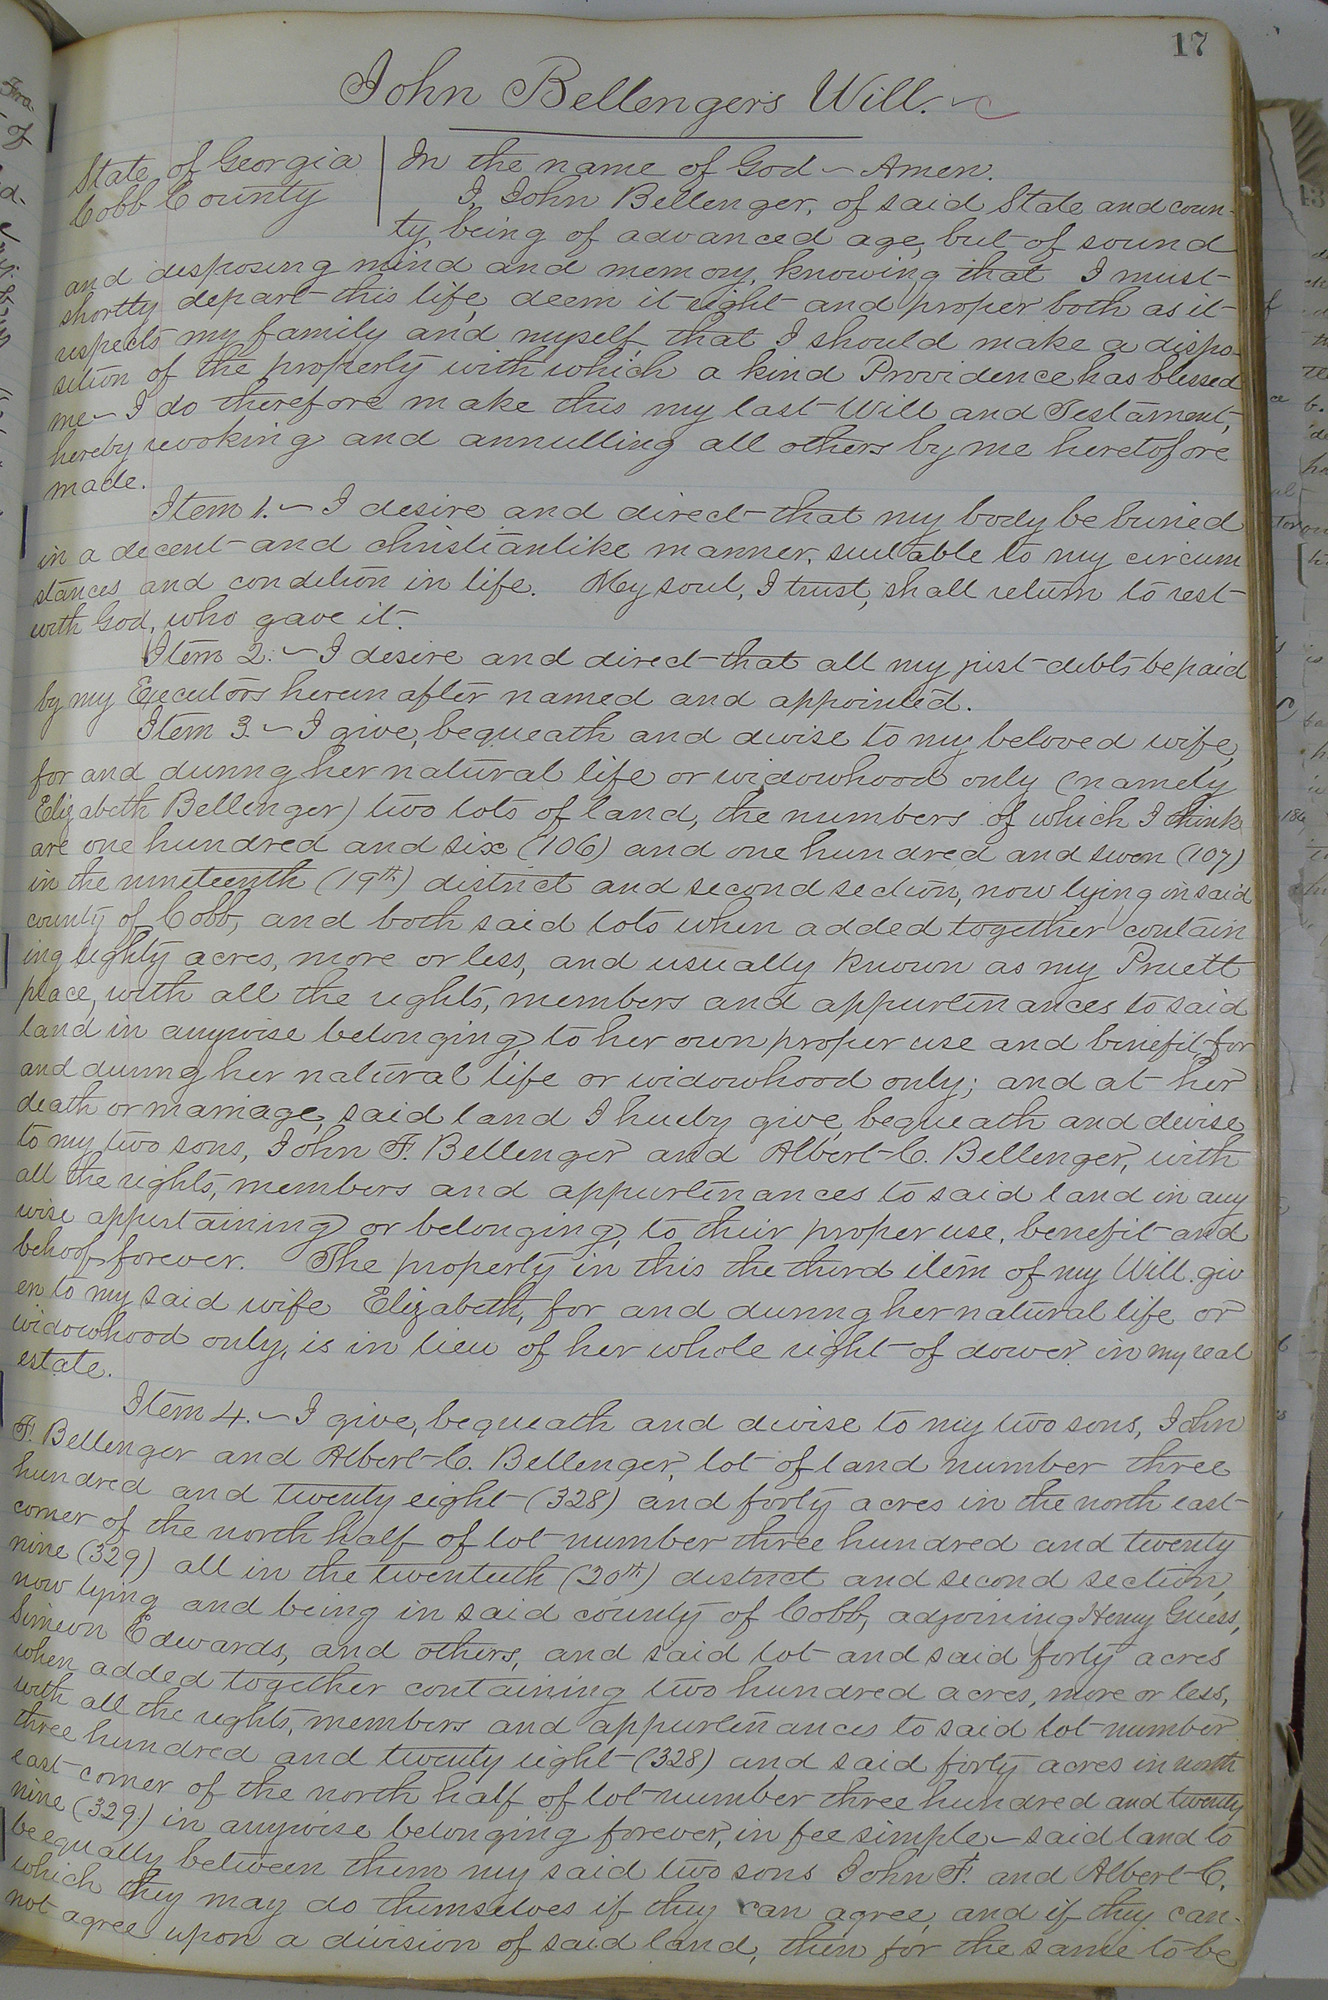 17
John Bellenger's Will.
State of Georgia
Cobb County
In the name of God - Amen.
I, John Bellenger, of said State and coun-
ty being of advanced age, but of sound
and disposing mind and memory, knowing that I must
shortly depart this life, deem it right and proper both as it
respects my family and myself that I should make a dispo-
sition of the property with which a kind Providence has blessed
me - I do therefore make this my last Will and Testament,
hereby revoking and annulling all others by me heretofore
made.
Item 1. - I desire and direct that my body be buried
in a decent and christianlike manner, suitable to my circum
stances and condition in life. My soul, I trust, shall return to rest
with God, who gave it.
Item 2. - I desire and direct that all my just debts be paid
by my Executors herein after named and appointed.
Item 3. - I give, bequeath and devise to my beloved wife,
for and during her natural life or widowhood only (namely
Elizabeth Bellenger) two lots of land, the numbers of which I think
are one hundred and six (106) and one hundred and seven (107)
in the nineteenth (19th) district and second section, now lying in said
county of Cobb, and both said lots when added together contain
ing eighty acres, more or less, and usually known as my Pruett
place, with all the rights, members and appurtenances to said
land in anywise belonging, to her own proper use and benefit for
and during her natural life or widowhood only; and at her
death or marriage, said land I hereby give, bequeath and devise
to my two sons, John F. Bellenger and Albert C. Bellenger, with
all the rights, members and appurtenances to said land in any
wise appertaining or belonging, to their proper use, benefit and
behoof forever. The property in this the third item of my Will giv
en to my said wife Elizabeth, for and during her natural life or
widowhood only, is in lieu of her whole right of dower in my real
estate.
Item 4. - I give, bequeath and devise to my two sons, John
F. Bellenger and Albert C. Bellenger, lot of land number three
hundred and twenty eight (328) and forty acres in the north east
corner of the north half of lot number three hundred and twenty
nine (329) all in the twentieth (20th) district and second section,
now lying and being in said county of Cobb, adjoining Henry Guess,
Simeon Edwards, and others, and said lot and said forty acres
when added together containing two hundred acres, more or less,
with all the rights, members and appurtenances to said lot number
three hundred and twenty eight (328) and said forty acres in north
east corner of the north half of lot number three hundred and twenty
nine (329.) in anywise belonging forever, in fee simple - said land to
be equally between them my said two sons John F. and Albert C.
which they may do themselves if they can agree, and if they can-
not agree upon a division of said land, then for the same to be